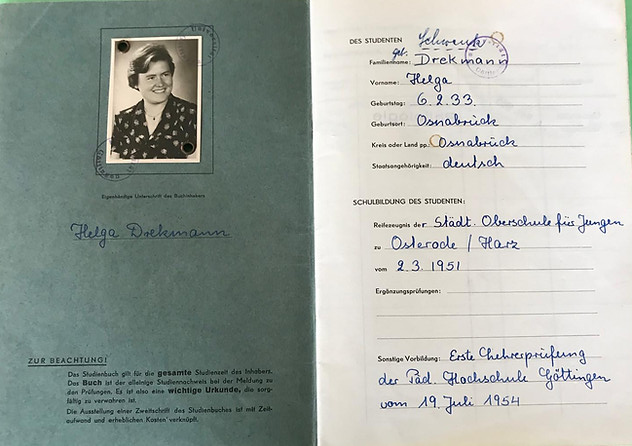 Eigenhändige Unterschrift des Buchinhabers
Helga Drekmann
ZUR BEACHTUNG!
Das Studienbuch gilt für die gesamte Studienzeit des Inhabers.
Das Buch ist der alleinige Studiennachweis bei der Meldung zu
den Prüfungen. Es ist also eine wichtige Urkunde, die sorg-
fältig zu verwahren ist.
Die Ausstellung einer Zweitschrift des Studienbuches ist mit Zeit-
aufwand und erheblichen Kosten verknüpft.
DES STUDENTEN Schwenk
Familienname: geb. Drekmann
Vorname: Helga
Geburtstag: 6.2.33.
Geburtsort: Osnabrück
Kreis oder Land pp.: Osnabrück
Staatsangehörigkeit: deutsch
SCHULBILDUNG DES STUDENTEN:
Reifezeugnis der Städt. Oberschule für Jungen
zu Osterode / Harz
vom 2.3.1951
Ergänzungsprüfungen:
Sonstige Vorbildung: Erste Lehrerprüfung
der Päd. Hochschule Göttingen
vom 19. Juli 1954